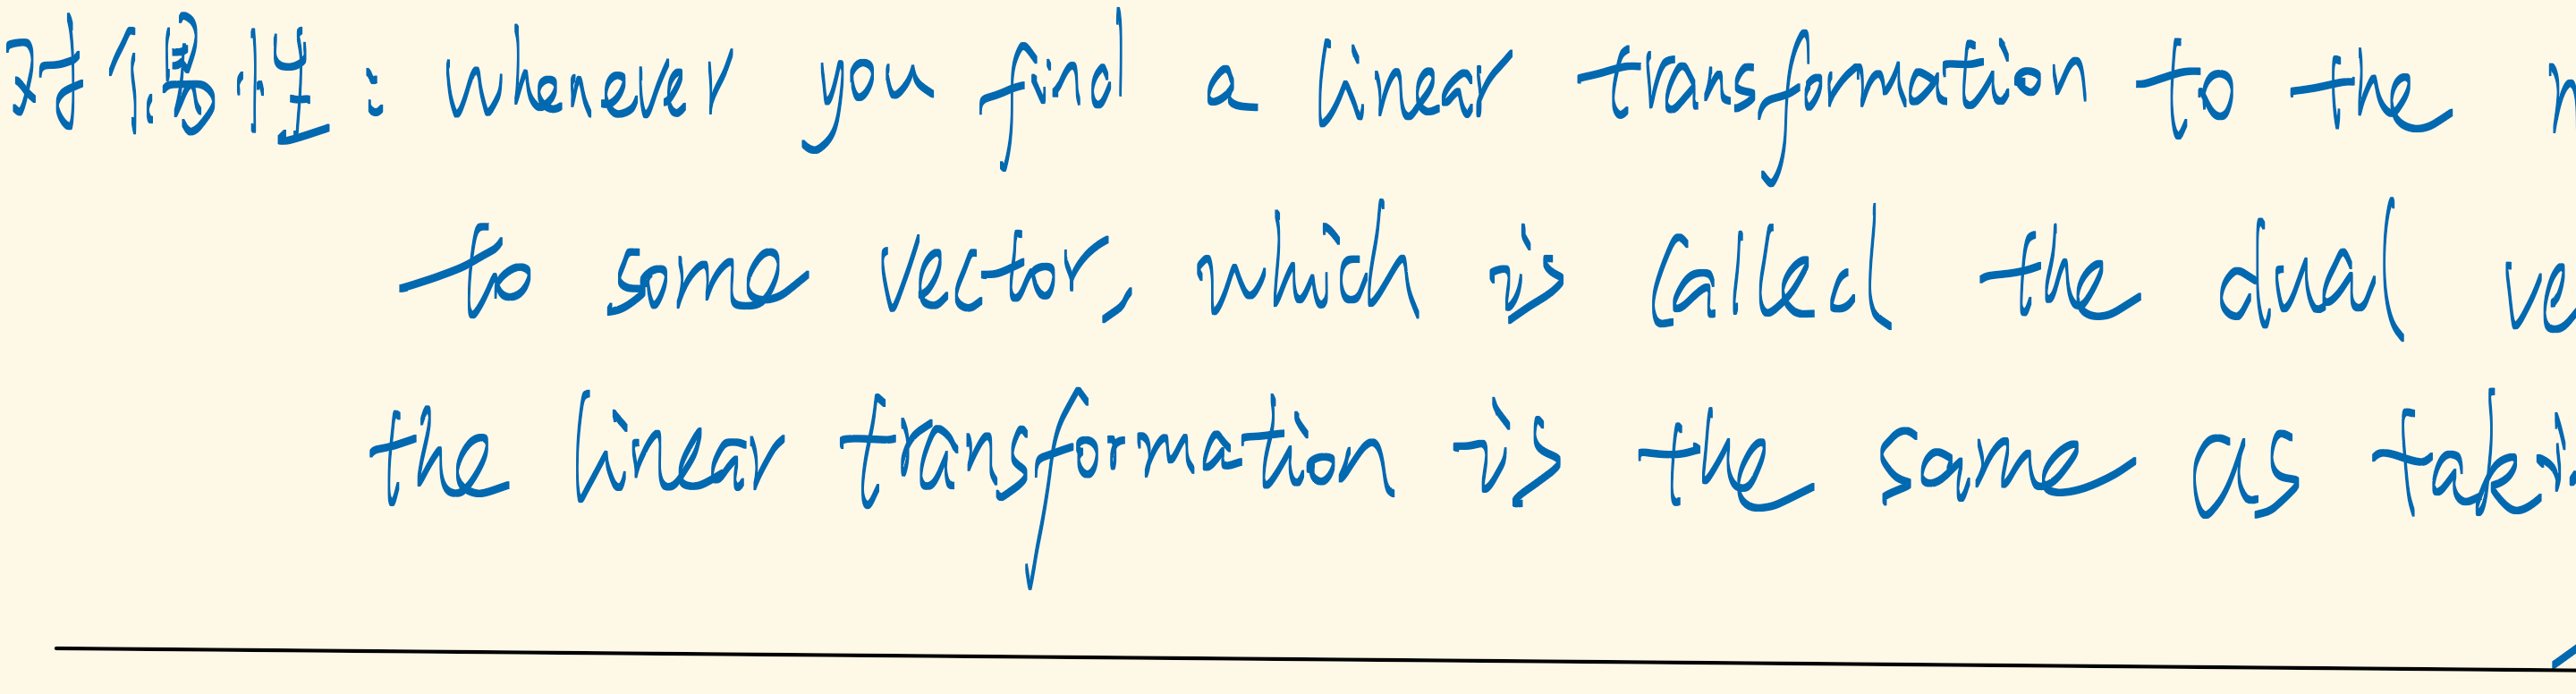 对偶性: whenever you find a linear transformation to the
to some vector, which is called the dual
the linear transformation is the same as